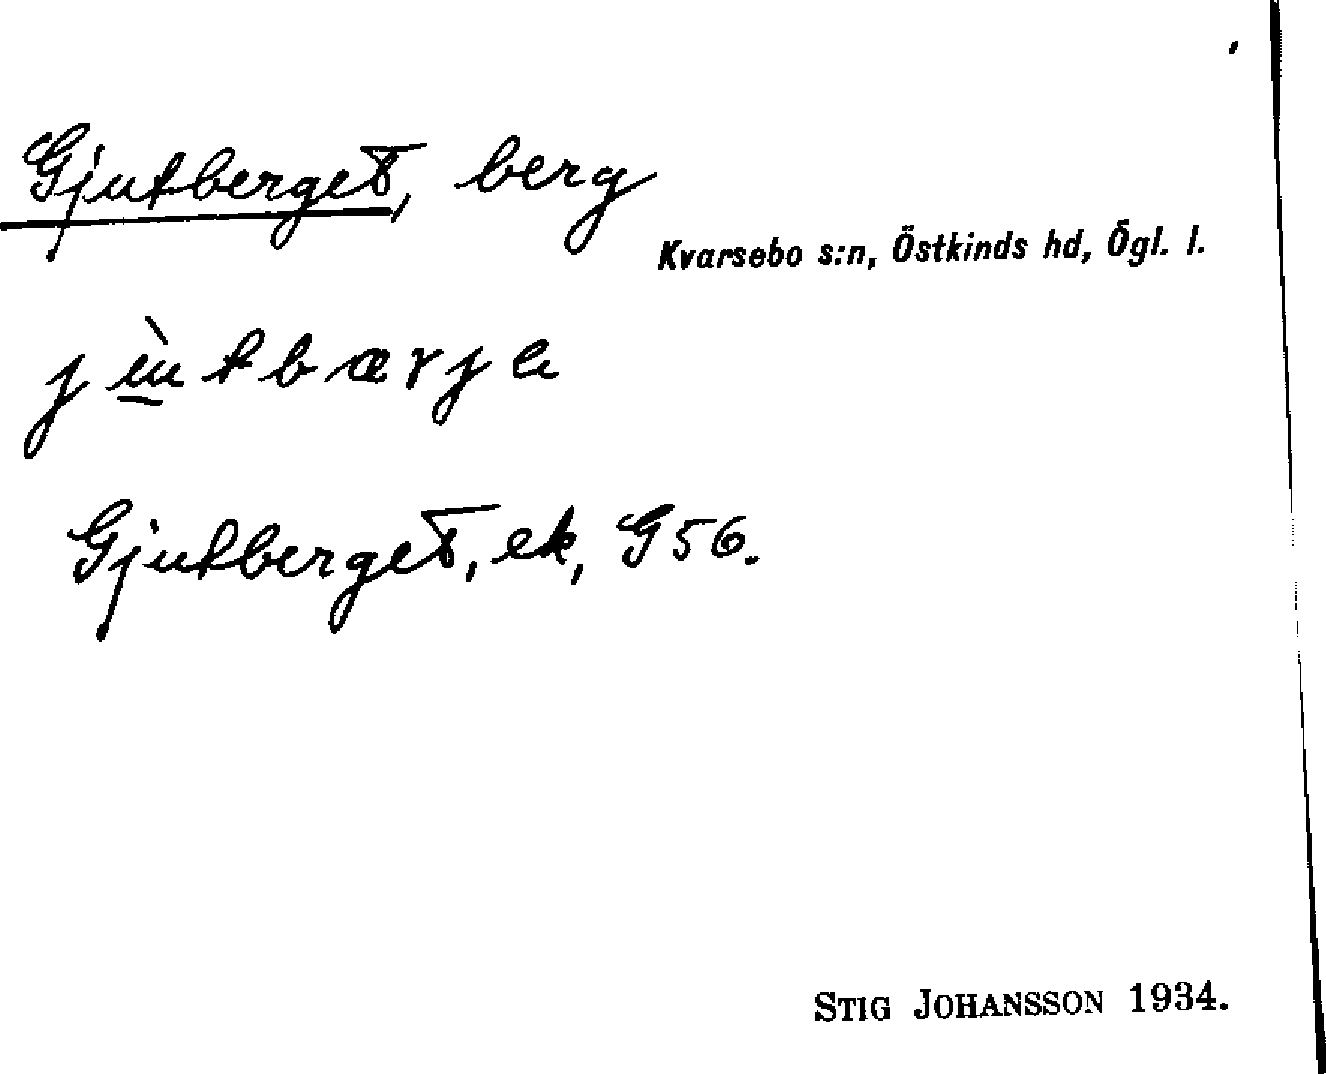 Gjutberget, berg
Kvarsebo s:n, Östkinds hd, Ögl. l.
jùtbærjə
Gjutberget, ek, G56.
STIG JOHANSSON 1934.